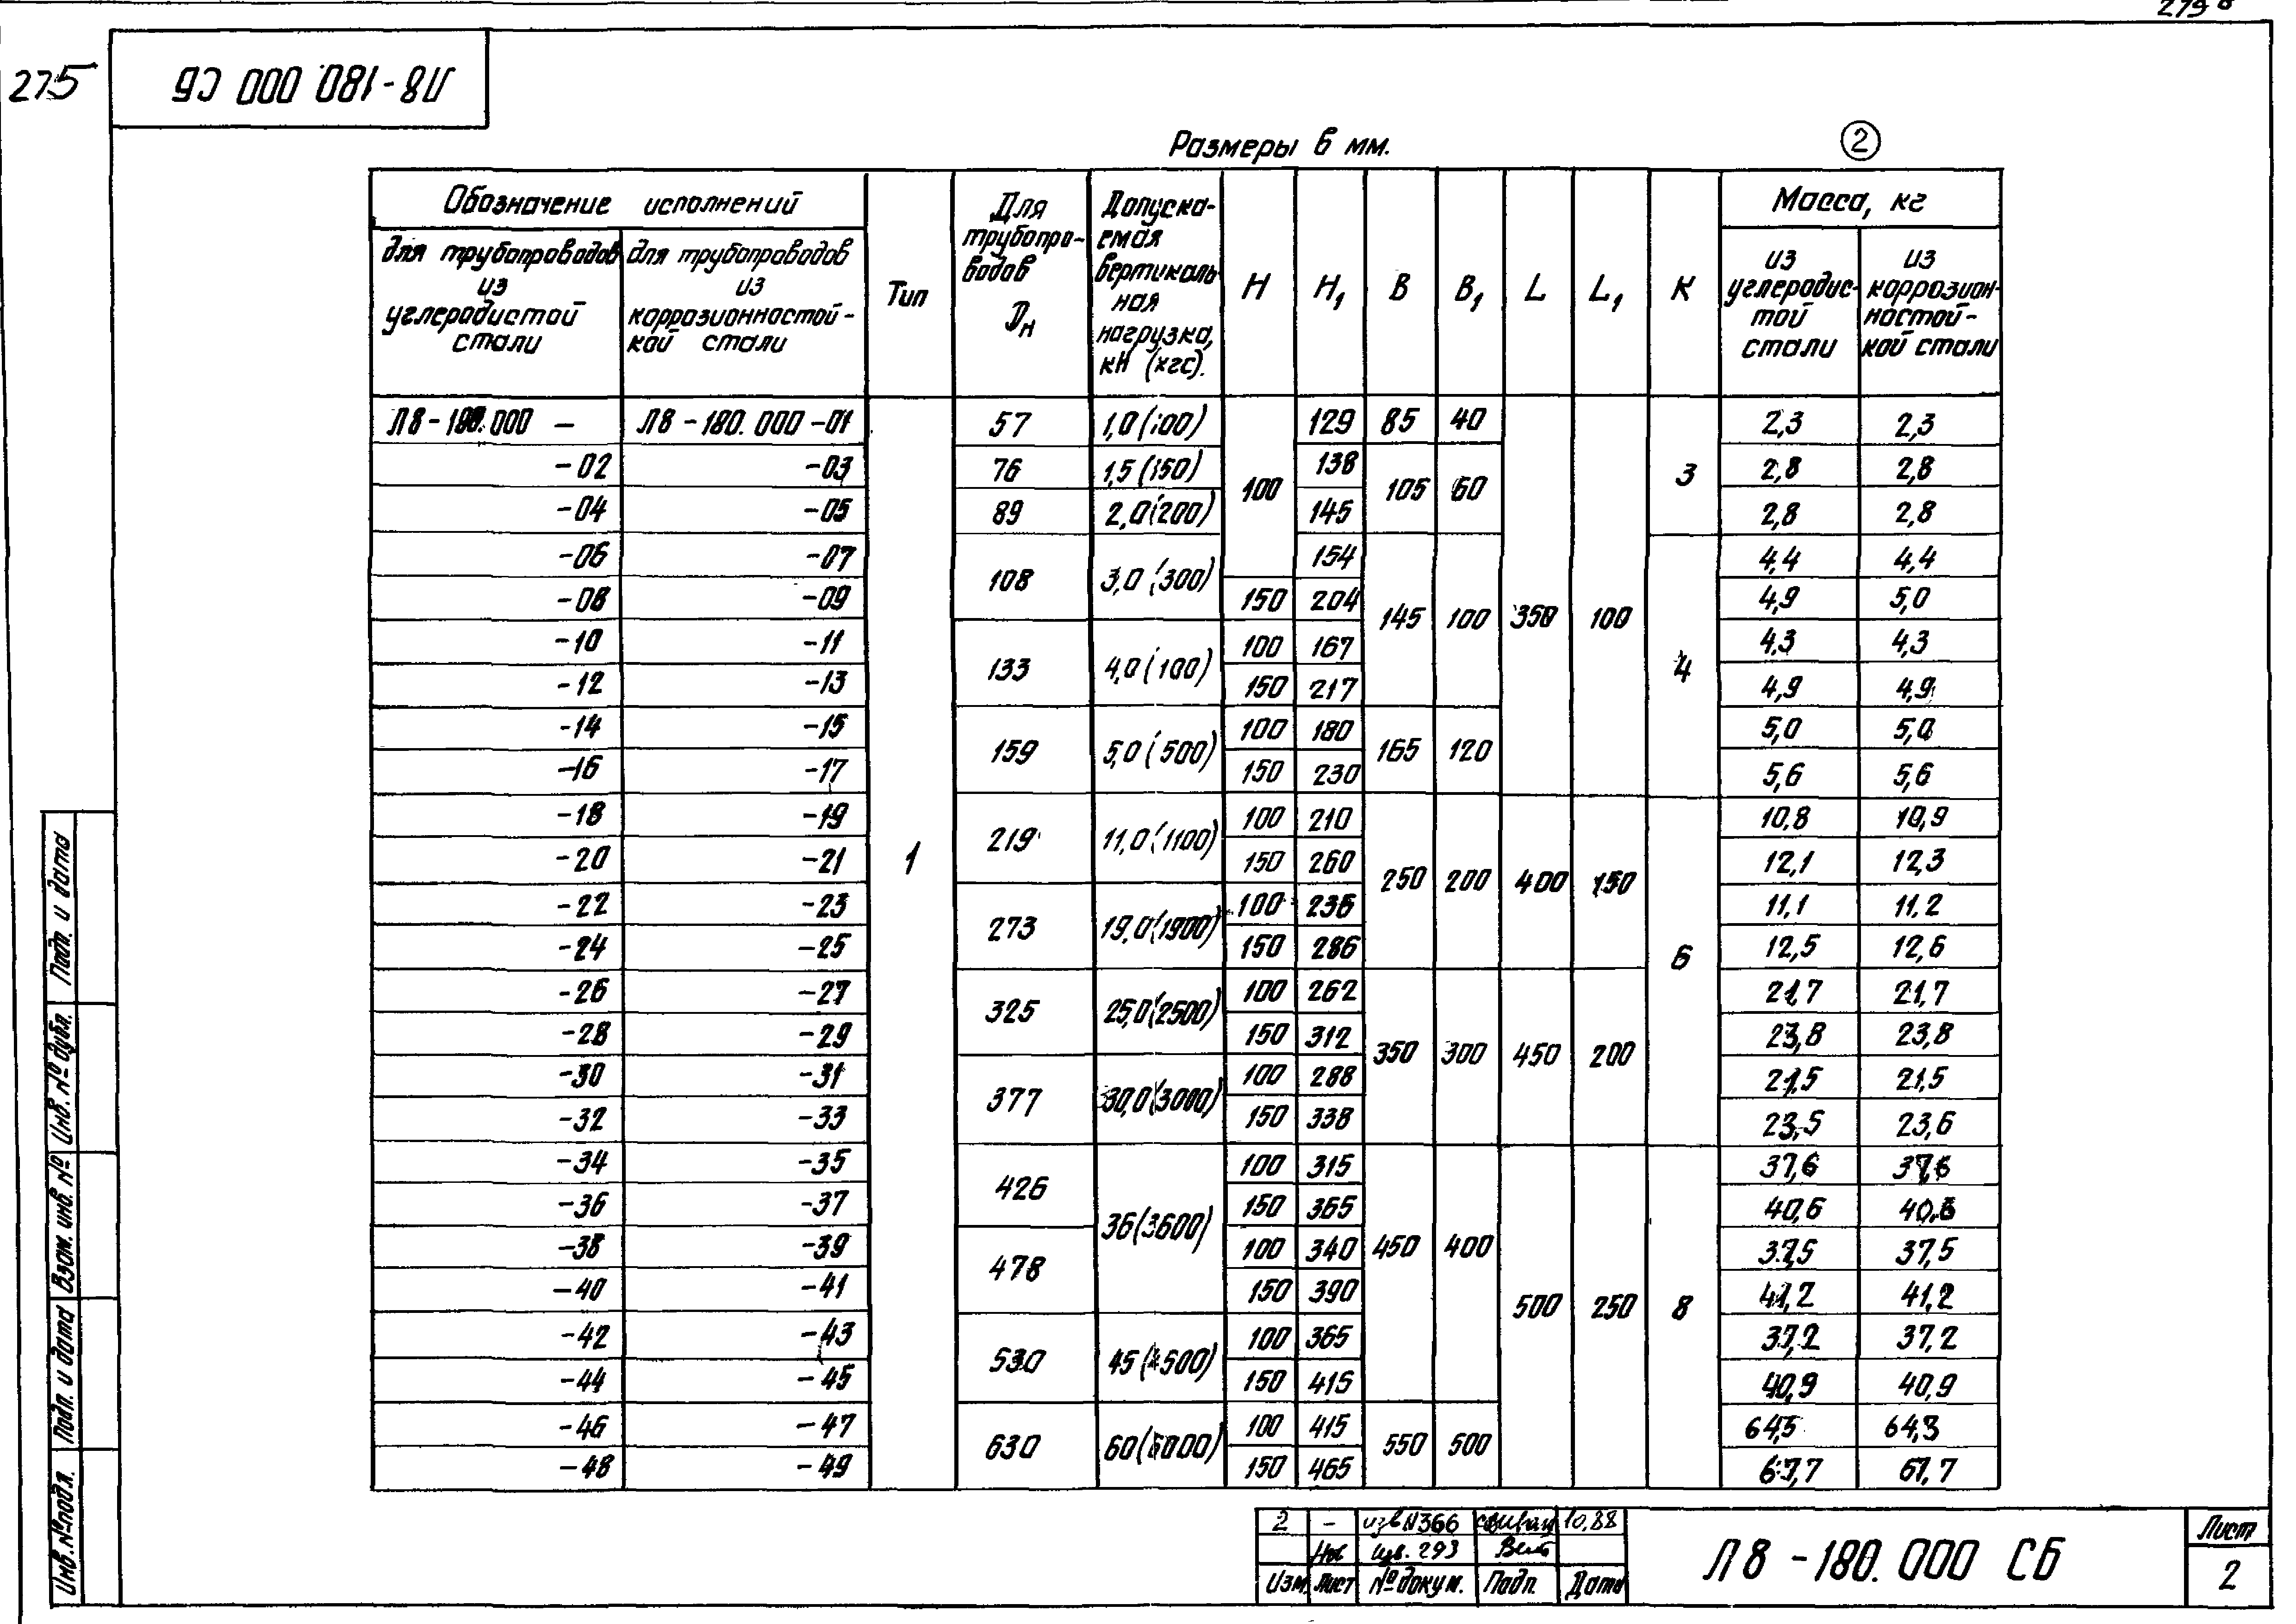 279 8
275
Л8-180.000 СБ
Размеры в мм.
2
Обозначение исполнений
для трубопроводов из углеродистой стали
для трубопроводов из коррозионностой-кой стали
Тип
Для трубопро-водов Dн
Допуска-емая вертикаль ная нагрузка, кН (кгс).
H H₁ B B₁ L L₁ K
Масса, кг
из углеродис-той стали
из коррозион-ностой-кой стали
Л8-180.000 - Л8-180.000-01 1 57 1,0 (100) 100 129 85 40 350 100 3 2,3 2,3
-02 -03 76 1,5 (150) 138 105 60 2,8 2,8
-04 -05 89 2,0 (200) 145 2,8 2,8
-06 -07 108 3,0 (300) 154 145 100 4 4,4 4,4
-08 -09 150 204 4,9 5,0
-10 -11 133 4,0 (100) 100 167 4,3 4,3
-12 -13 150 217 4,9 4,9
-14 -15 159 5,0 (500) 100 180 165 120 5,0 5,0
-16 -17 150 230 5,6 5,6
-18 -19 219 11,0 (1100) 100 210 250 200 400 150 6 10,8 10,9
-20 -21 150 260 12,1 12,3
-22 -23 273 19,0 (1900) 100 236 11,1 11,2
-24 -25 150 286 12,5 12,6
-26 -27 325 25,0 (2500) 100 262 350 300 450 200 21,7 21,7
-28 -29 150 312 23,8 23,8
-30 -31 377 30,0 (3000) 100 288 21,5 21,5
-32 -33 150 338 23,5 23,6
-34 -35 426 36 (3600) 100 315 450 400 500 250 8 37,6 37,6
-36 -37 150 365 40,6 40,6
-38 -39 478 100 340 37,5 37,5
-40 -41 150 390 41,2 41,2
-42 -43 530 45 (4500) 100 365 37,2 37,2
-44 -45 150 415 40,9 40,9
-46 -47 630 60 (6000) 100 415 550 500 64,5 64,3
-48 -49 150 465 67,7 67,7
Подп. и дата
Инв. № дубл.
Взам. инв. №
Подп. и дата
Инв. № подл.
2 - изв N366 10.88
Нов изв. 293
Изм. Лист № докум. Подп. Дата
Л8-180.000 СБ
Лист
2